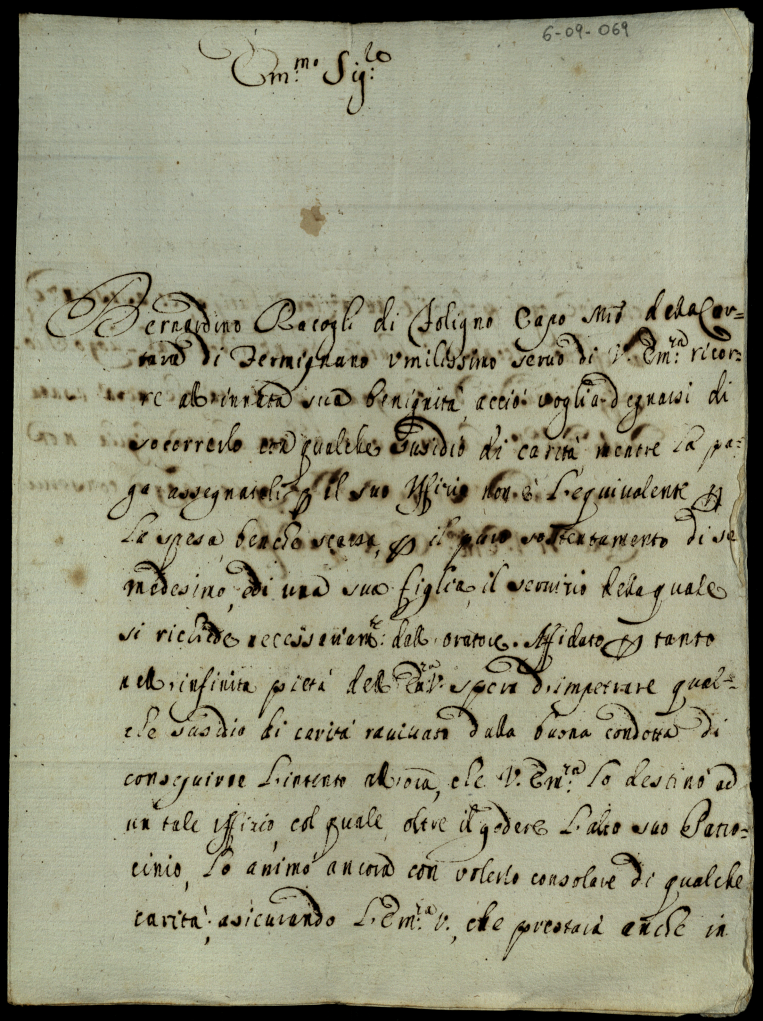 6-09-069
Em:mo Sig:re
Bernardino Racogli di Foligno Capo Mro della Car=
tara di Fermignano umilissimo servo di V. Em:za ricor=
re all'innata sua benignità, acciò voglia degnarsi di
socorrerlo con qualche susidio di carità mentre la pa=
ga assegnatali p il suo Uffizio non è l'equivalente p
la spesa, benche scarsa, p il puro sostentamento di se
medesimo, e di una sua figlia, il servizio della quale
si richiede necessariam:te dall'oratore. Affidato p tanto
nell'infinita pietà dell'Em:za V. spera d'impetrare qual=
che susidio di carità ravivato dalla buona condotta di
conseguirne l'intento allora, che V. Em:za lo destinò ad
un tale uffizio, col quale, oltre il godere l'alto suo Patro=
cinio, lo animò ancora con volerlo consolare di qualche
carità; asicurando l'Em:za V., che prestarà anche in